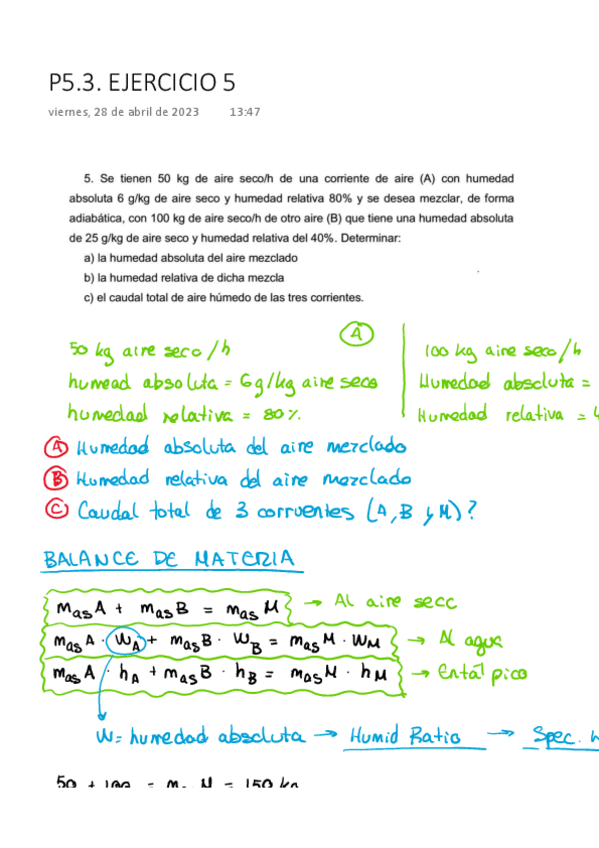 P5.3. EJERCICIO 5
viernes, 28 de abril de 2023 13:47
5. Se tienen 50 kg de aire seco/h de una corriente de aire (A) con humedad
absoluta 6 g/kg de aire seco y humedad relativa 80% y se desea mezclar, de forma
adiabática, con 100 kg de aire seco/h de otro aire (B) que tiene una humedad absoluta
de 25 g/kg de aire seco y humedad relativa del 40%. Determinar:
a) la humedad absoluta del aire mezclado
b) la humedad relativa de dicha mezcla
c) el caudal total de aire húmedo de las tres corrientes.
A
50 kg aire seco/h
humead absoluta = 6g/kg aire seco
humedad relativa = 80%
100 kg aire seco/h
Humedad absoluta =
Humedad relativa =
A Humedad absoluta del aire mezclado
B Humedad relativa del aire mezclado
C Caudal total de 3 corruentes (A, B y M)?
BALANCE DE MATERIA
masA + masB = masM → Al aire secc
masA · WA + masB · WB = masM · WM → Al agua
masA · hA + masB · hB = masM · hM → Entálpico
W = humedad absoluta → Humid Ratio → Spec.
50 + 100 = mas M = 150 kg